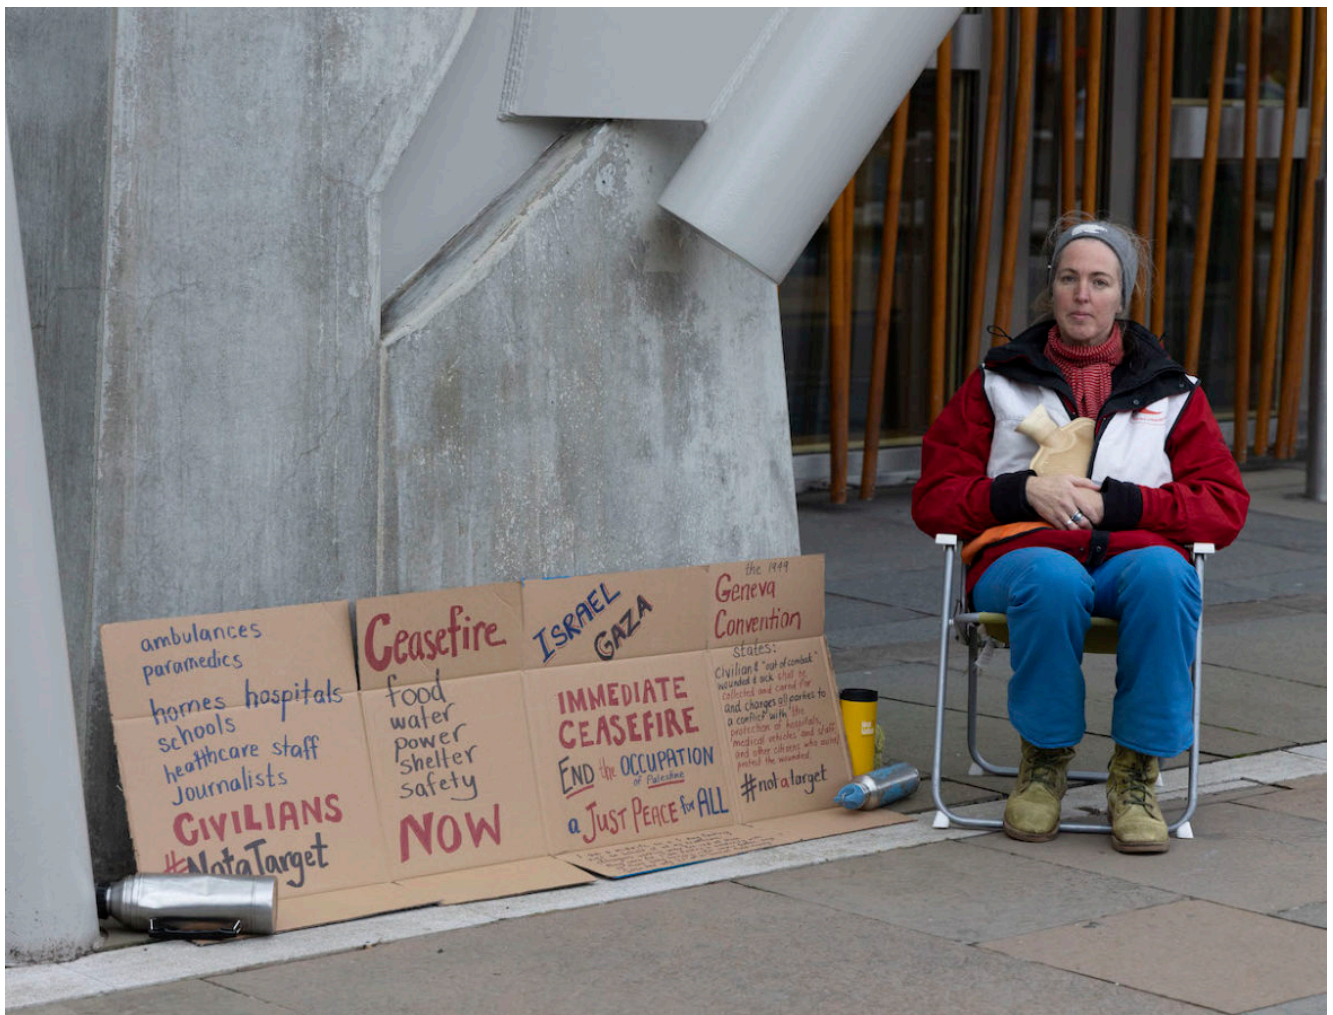 ambulances
paramedics
homes hospitals
schools
healthcare staff
journalists
CIVILIANS
#NotaTarget
Ceasefire
food
water
power
shelter
safety
NOW
ISRAEL
GAZA
IMMEDIATE
CEASEFIRE
END the OCCUPATION
of Palestine
a JUST PEACE for ALL
the 1949
Geneva
Convention
states:
Civilian & "out of combat"
wounded & sick shall be
collected and cared for
and charges all parties to
a conflict with "the
protection of hospitals,
medical vehicles and staff
and other citizens who assist
protect the wounded.
#notatarget